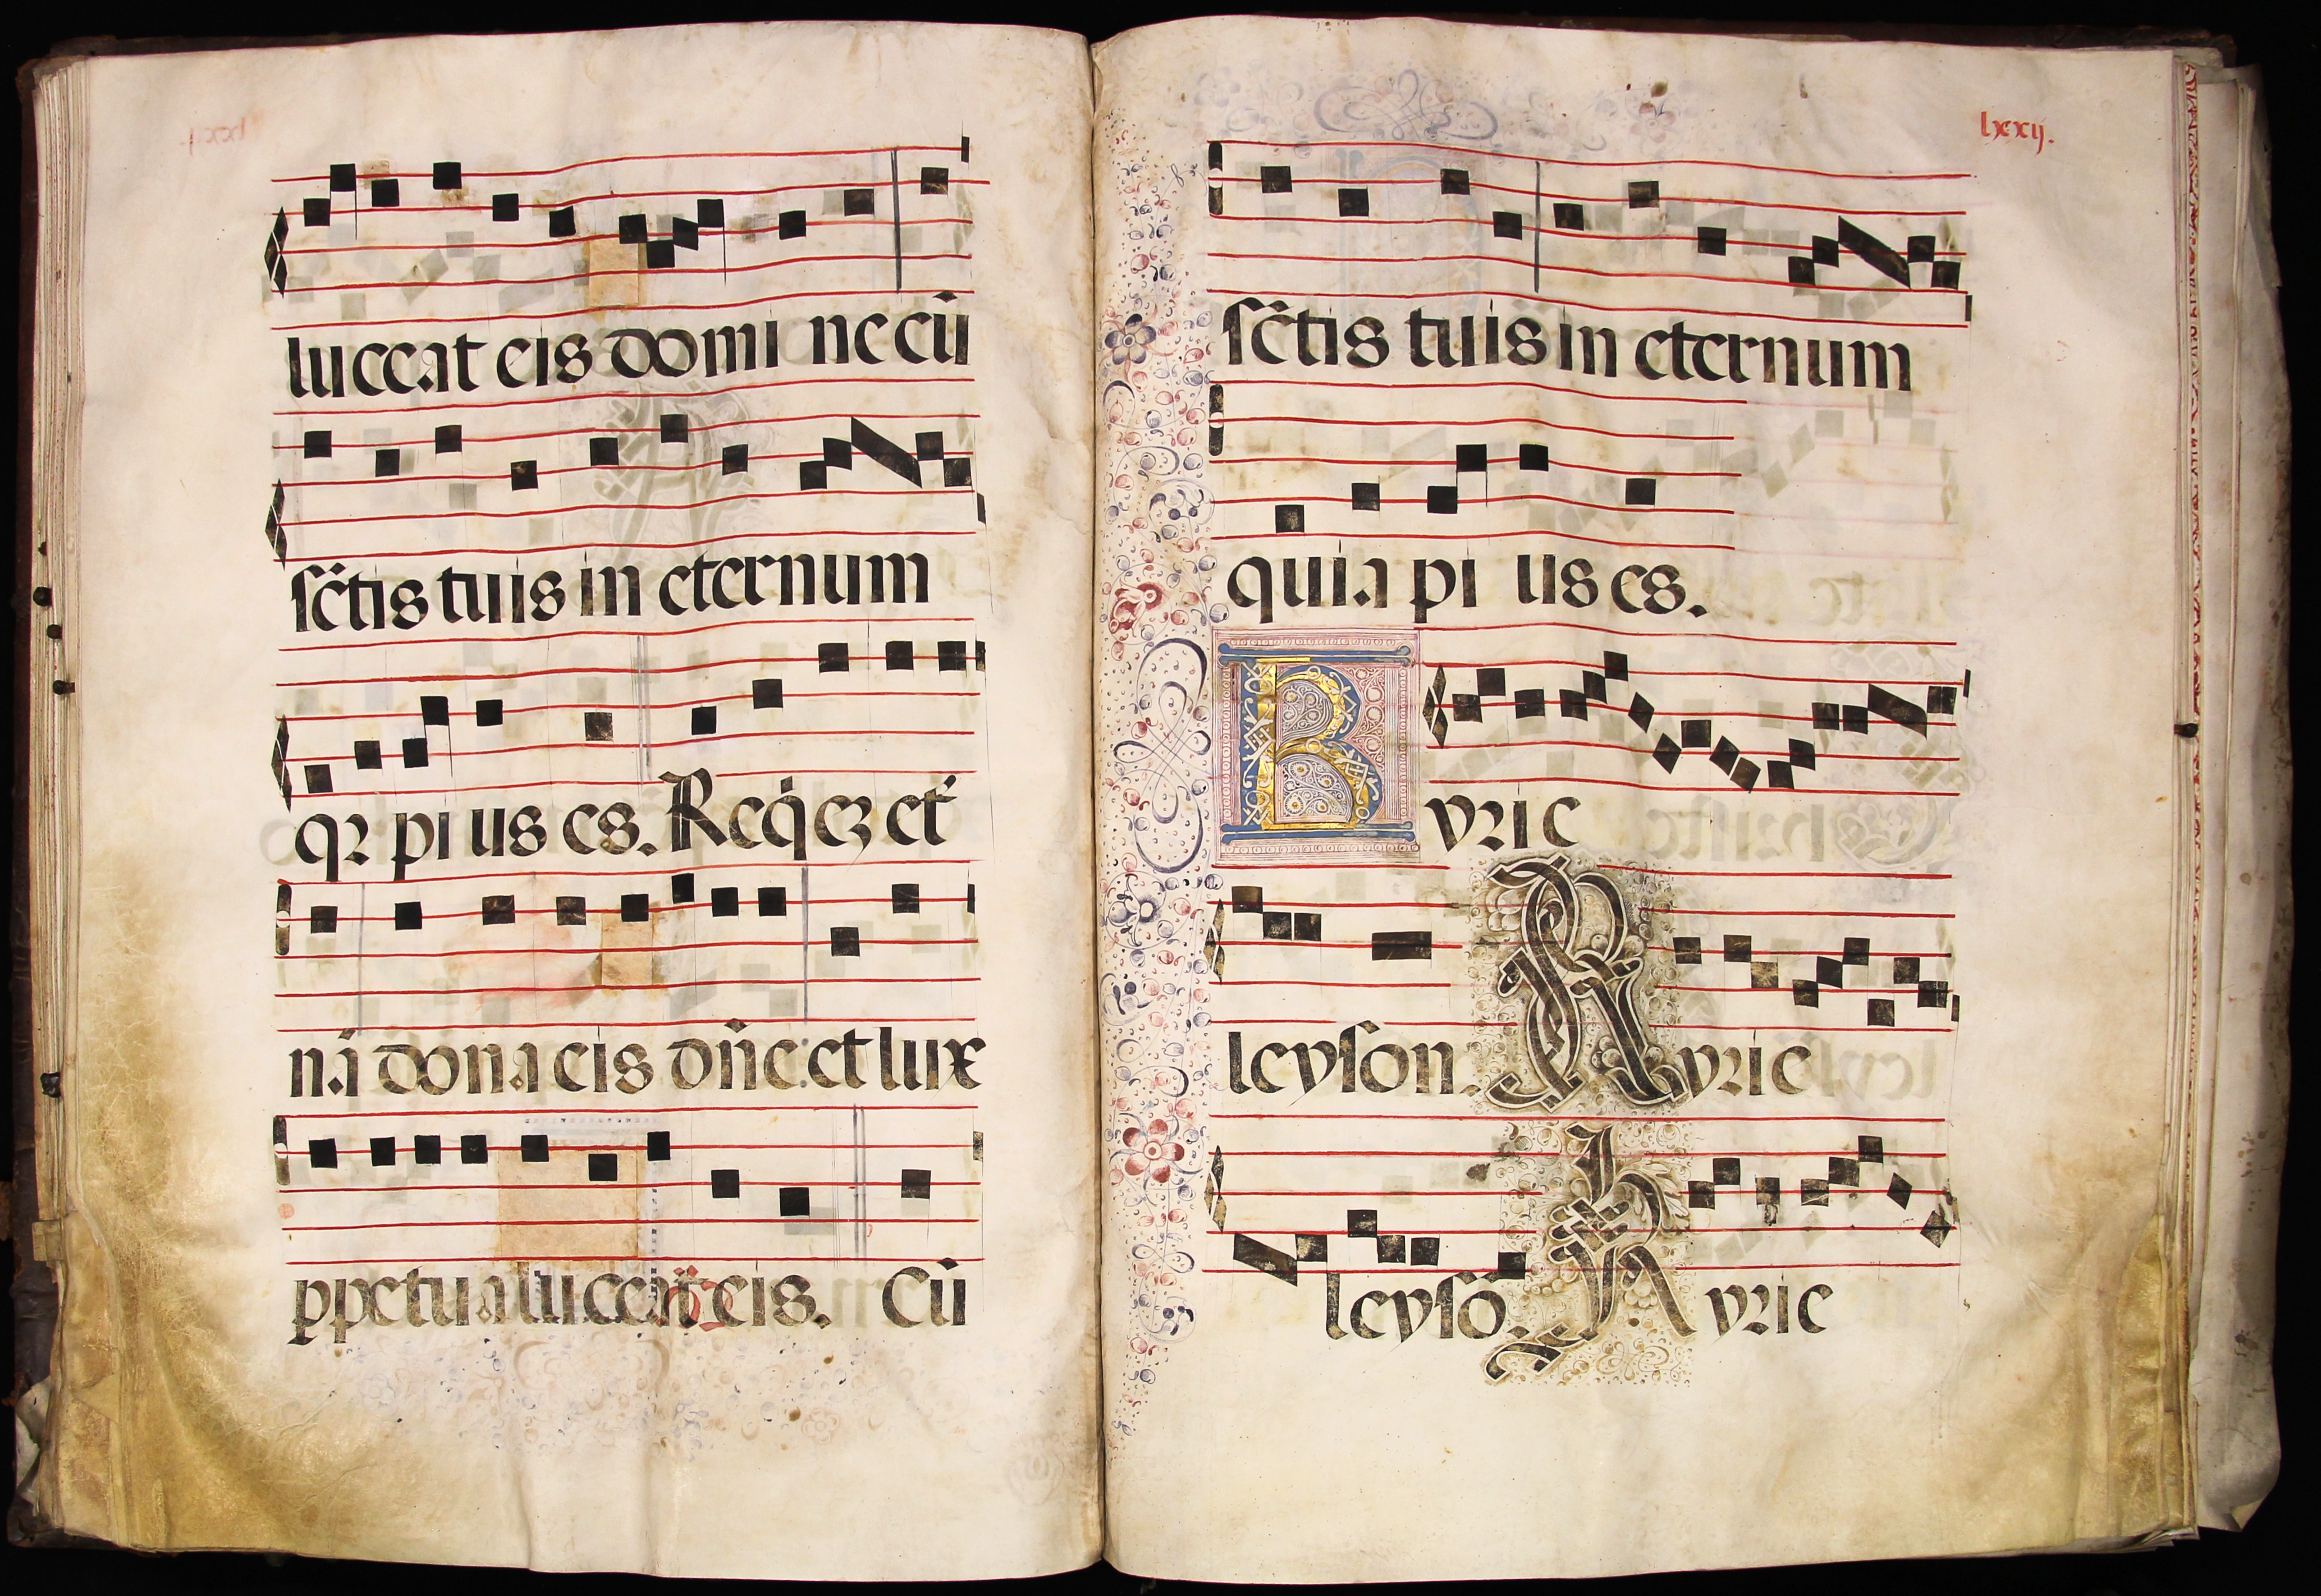 luceat eis domi ne cū
sc̄tis tuis in eternum
qꝛ pi us es. Req̇eʒ et
nā dona eis dn̄e: et lux
ꝑpetua luceat eis. Cū
lxxij.
sc̄tis tuis in eternum
quia pi us es.
Kyrie
leyson. Kyrie
leysō. Kyrie